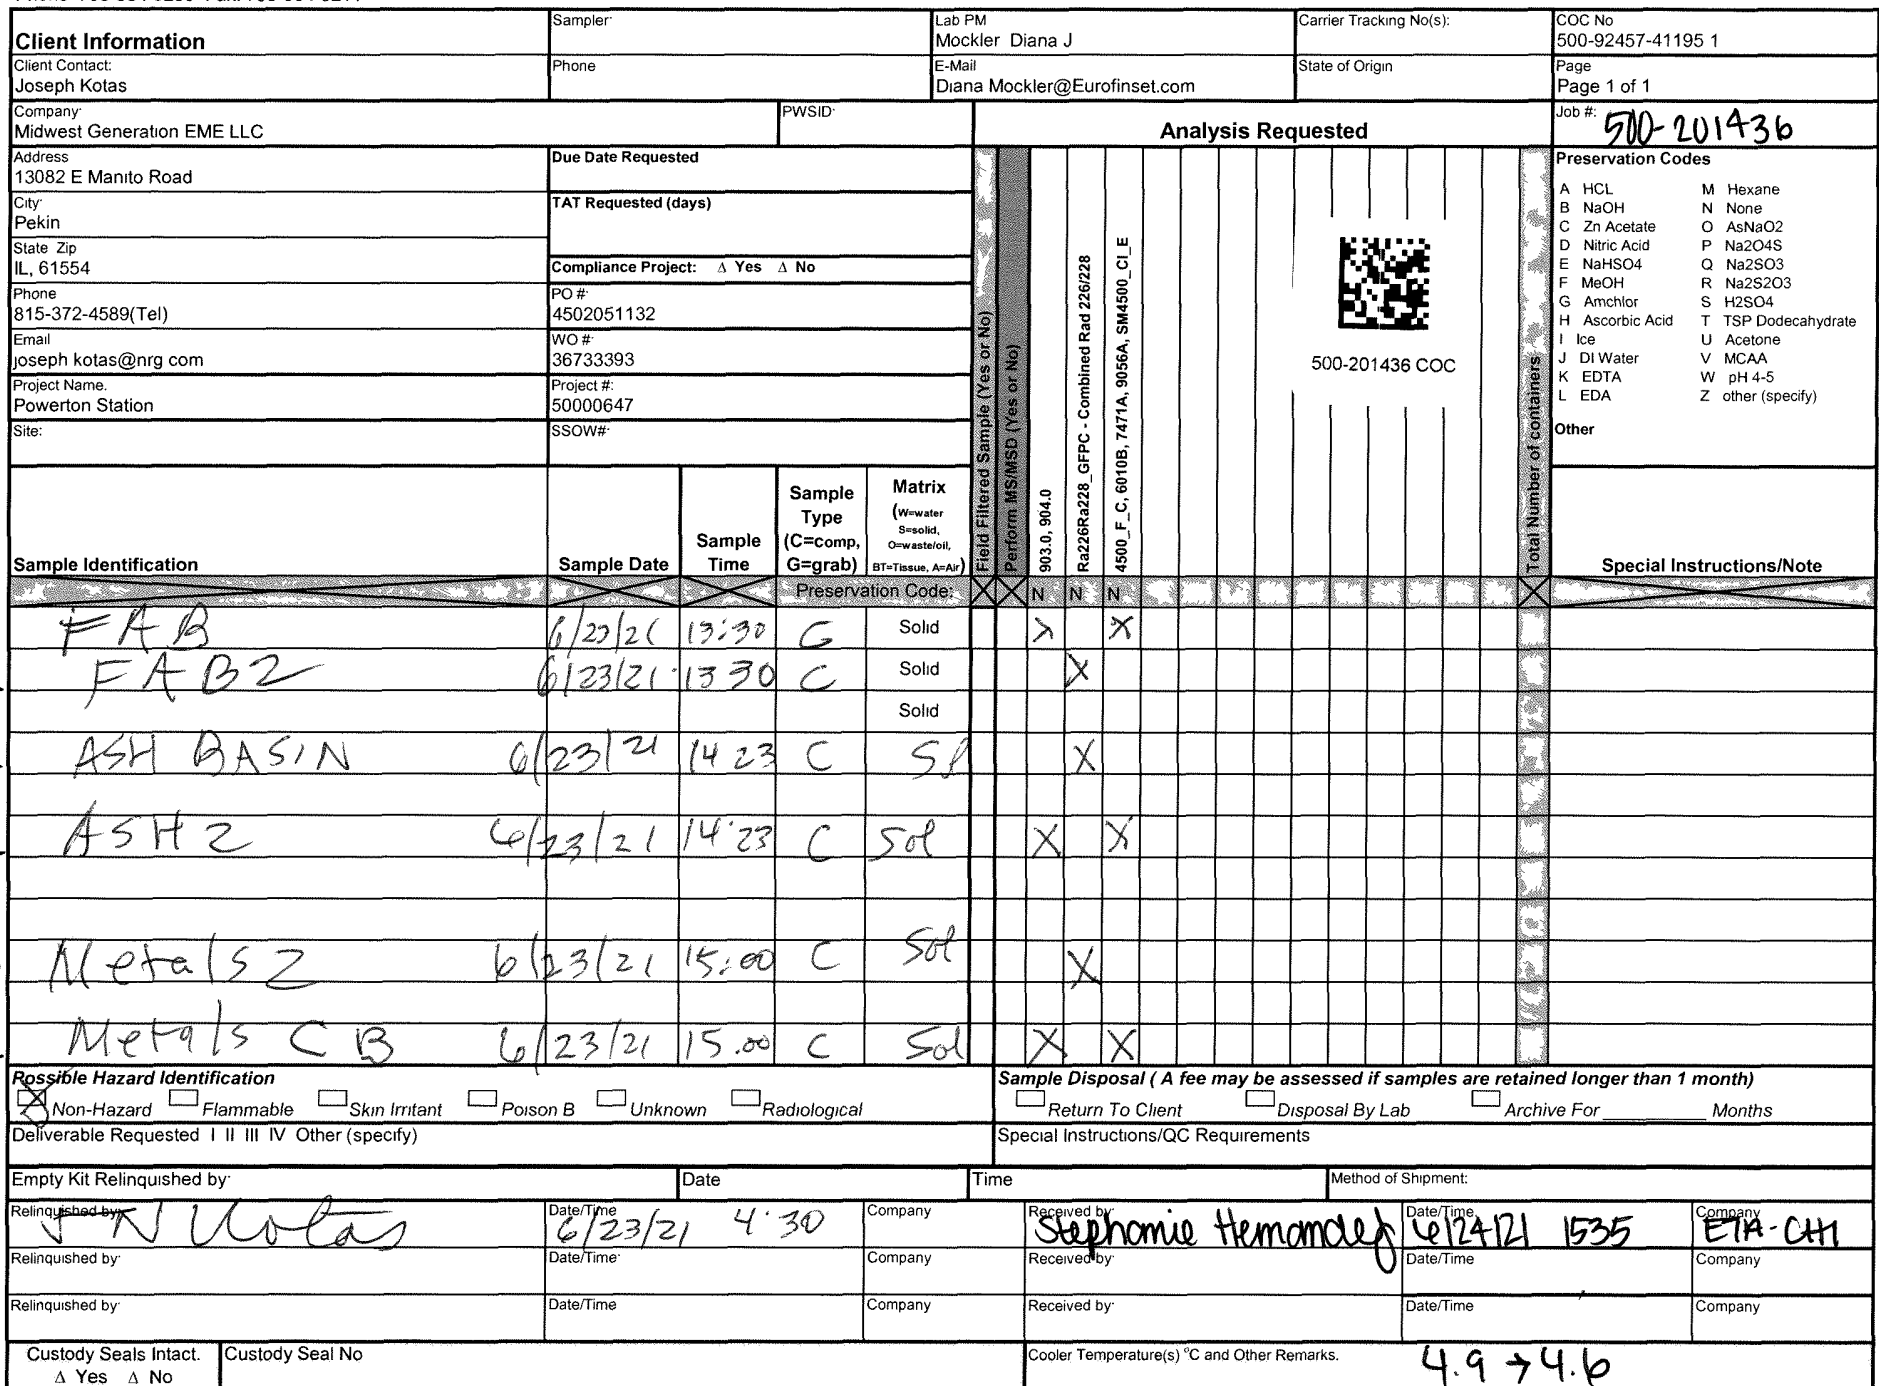 Client Information
Sampler:
Lab PM
Mockler Diana J
Carrier Tracking No(s):
COC No
500-92457-41195 1
Client Contact:
Joseph Kotas
Phone
E-Mail
Diana Mockler@Eurofinset.com
State of Origin
Page
Page 1 of 1
Company
Midwest Generation EME LLC
PWSID
Analysis Requested
Job #:
500-201436
Address
13082 E Manito Road
Due Date Requested
City
Pekin
TAT Requested (days)
State Zip
IL, 61554
Compliance Project: Δ Yes Δ No
Phone
815-372-4589(Tel)
PO #
4502051132
Email
joseph kotas@nrg com
WO #
36733393
Project Name.
Powerton Station
Project #:
50000647
Site:
SSOW#
Field Filtered Sample (Yes or No)
Perform MS/MSD (Yes or No)
903.0, 904.0
Ra226Ra228_GFPC - Combined Rad 226/228
4500_F_C, 6010B, 7471A, 9056A, SM4500_Cl_E
500-201436 COC
Total Number of containers
Preservation Codes
A HCL M Hexane
B NaOH N None
C Zn Acetate O AsNaO2
D Nitric Acid P Na2O4S
E NaHSO4 Q Na2SO3
F MeOH R Na2S2O3
G Amchlor S H2SO4
H Ascorbic Acid T TSP Dodecahydrate
I Ice U Acetone
J DI Water V MCAA
K EDTA W pH 4-5
L EDA Z other (specify)
Other
Sample Identification
Sample Date
Sample Time
Sample Type (C=comp, G=grab)
Matrix (W=water S=solid, O=waste/oil, BT=Tissue, A=Air)
Special Instructions/Note
Preservation Code: N N N
FAB 6/23/21 13:30 G Solid X X
FAB2 6/23/21 13 30 C Solid X
Solid
ASH BASIN 6/23/21 14 23 C Sl X
ASH 2 6/23/21 14 23 C Sol X X
Metals 2 6/23/21 15:00 C Sol X
Metals CB 6/23/21 15.00 C Sol X X
Possible Hazard Identification
X Non-Hazard Flammable Skin Irritant Poison B Unknown Radiological
Sample Disposal ( A fee may be assessed if samples are retained longer than 1 month)
Return To Client Disposal By Lab Archive For ________ Months
Deliverable Requested I II III IV Other (specify)
Special Instructions/QC Requirements
Empty Kit Relinquished by
Date
Time
Method of Shipment:
Relinquished by
Kotas
Date/Time
6/23/21 4 30
Company
Received by
Stephanie Hernandez
Date/Time
6/24/21 1535
Company
ETA-CHI
Relinquished by
Date/Time
Company
Received by
Date/Time
Company
Relinquished by
Date/Time
Company
Received by
Date/Time
Company
Custody Seals Intact.
Δ Yes Δ No
Custody Seal No
Cooler Temperature(s) °C and Other Remarks.
4.9 → 4.6